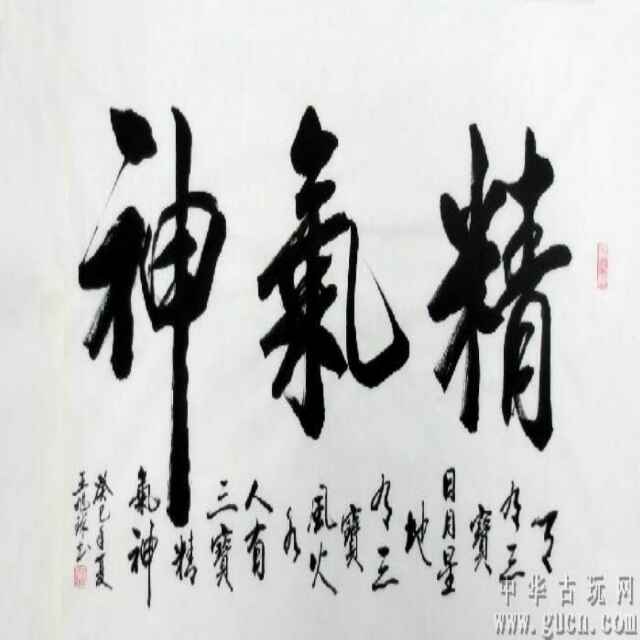 精氣神
天
有三
寶
日月星
地
有三
寶
風火
水
人有
三寶
精
氣神
癸巳年夏
中华古玩网
www.gucn.com